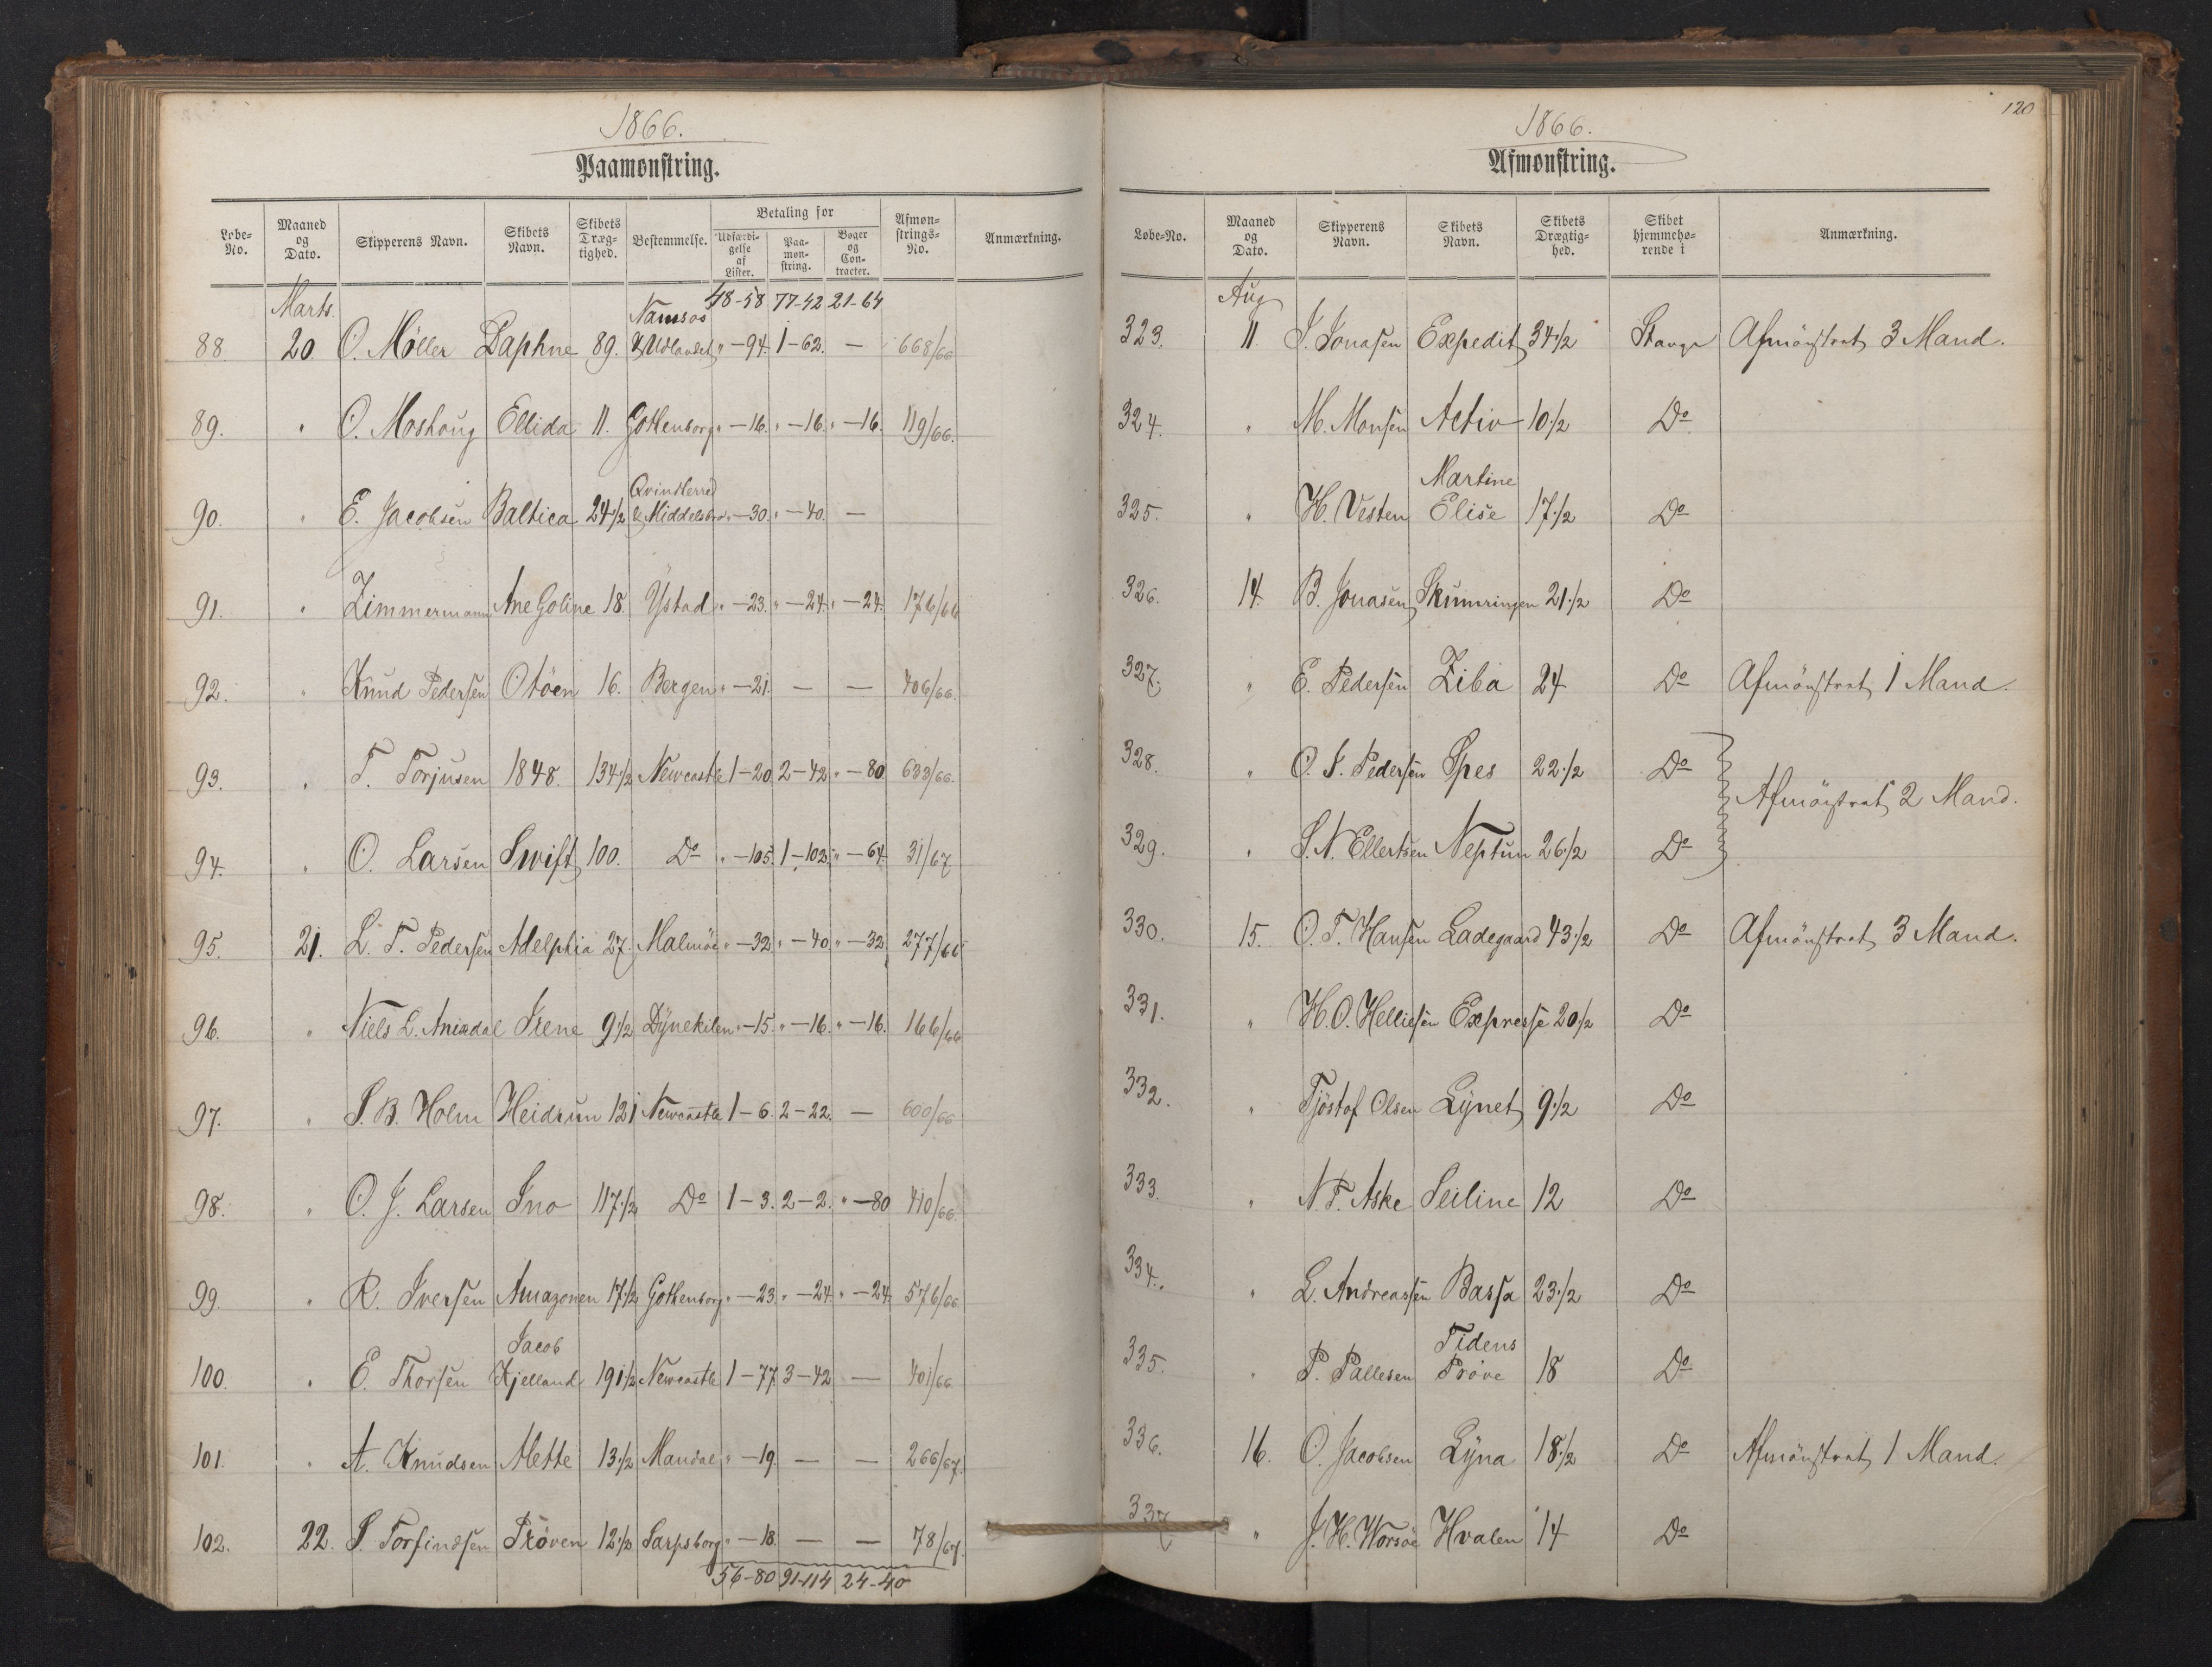 1866.
Paamønstring.
Løbe-No. Maaned og Dato. Skipperens Navn. Skibets Navn. Skibets Dræg-tighed. Bestemmelse. Betaling for Udfærdi-gelse af Lister. Paa-møn-string. Bøger og Con-tracter. Afmøn-strings-No. Anmærkning.
Marts. 48-58 77-42 21-64
Namsos
88. 20. O. Møller Daphne 89. & Udlandet " -94. 1-62. — 668/66
89. " O. Moshoug Ellida 11. Gothenborg " -16. " -16. " -16. 119/66.
Qvindherred
90. " E. Jacobsen Baltica 24 1/2 & Middelsbro " -30. " -40. —
91. " Zimmermann Ane Goline 18. Ystad " -23. " -24. " -24. 176/66
92. " Knud Pedersen Otöen 16. Bergen " -21. — — 406/66.
93. " T. Torjusen 1848. 134 1/2 Newcastle 1-20 2-42 " -80 633/66.
94. " O. Larsen Swift 100. Do " -105. 1-102. " -64. 31/67
95. 21. L. T. Pedersen Adelphia 27. Malmöe " -32. " -40 " -32. 277/66
96. " Niels L. Anixdal Irene 9 1/2 Dynekilen " -15. " -16. " -16. 166/66
97. " S. B. Holm Heidrun 121 Newcastle 1-6. 2-22. — 600/66
98. " O. J. Larsen Ino 117 1/2 Do 1-3. 2-2. " -80 410/66.
99. " R. Iversen Amazonen 17 1/2 Gothenborg " -23. " -24. " -24. 576/66.
Jacob
100. " E. Thorsen Kjelland 191 1/2 Newcastle 1-77. 3-42 — 401/66
101. " A. Knudsen Mette 13 1/2 Mandal " -19. — — 266/67.
102. 22. S. Torfindsen Pröven 12 1/2 Sarpsborg " -18. — — 78/67.
56-80 91-114 24-40
120
1866.
Afmønstring.
Løbe-No. Maaned og Dato. Skipperens Navn. Skibets Navn. Skibets Drægtig-hed. Skibet hjemmehø-rende i Anmærkning.
Aug
323. 11. J. Jonasen Expedit 34 1/2 Stavgr Afmönstret 3 Mand.
324. " M. Monsen Activ 10 1/2 Do
Martine
325. " H. Vesten Elise 17 1/2 Do
326. 14. B. Jonasen Skumringen 21 1/2 Do
327. " E. Pedersen Ziba 24 Do Afmönstret 1 Mand.
328. " O. S. Pedersen Spes 22 1/2 Do
Afmönstret 2 Mand.
329. " S. N. Ellertsen Neptun 26 1/2 Do
330. 15. O. T. Hansen Ladegaard 43 1/2 Do Afmönstret 3 Mand.
331. " H. O. Helliesen Expresse 20 1/2 Do
332. " Tjöstof Olsen Lynet 9 1/2 Do
333. " N. P. Aske Seiline 12 Do
334. " L. Andreassen Bassa 23 1/2 Do
Tidens
335. " P. Pallesen Pröve 18 Do
336. 16. O. Jacobsen Lyna 18 1/2 Do Afmönstret 1 Mand.
337. " J. H. Worsöe Hvalen 14 Do